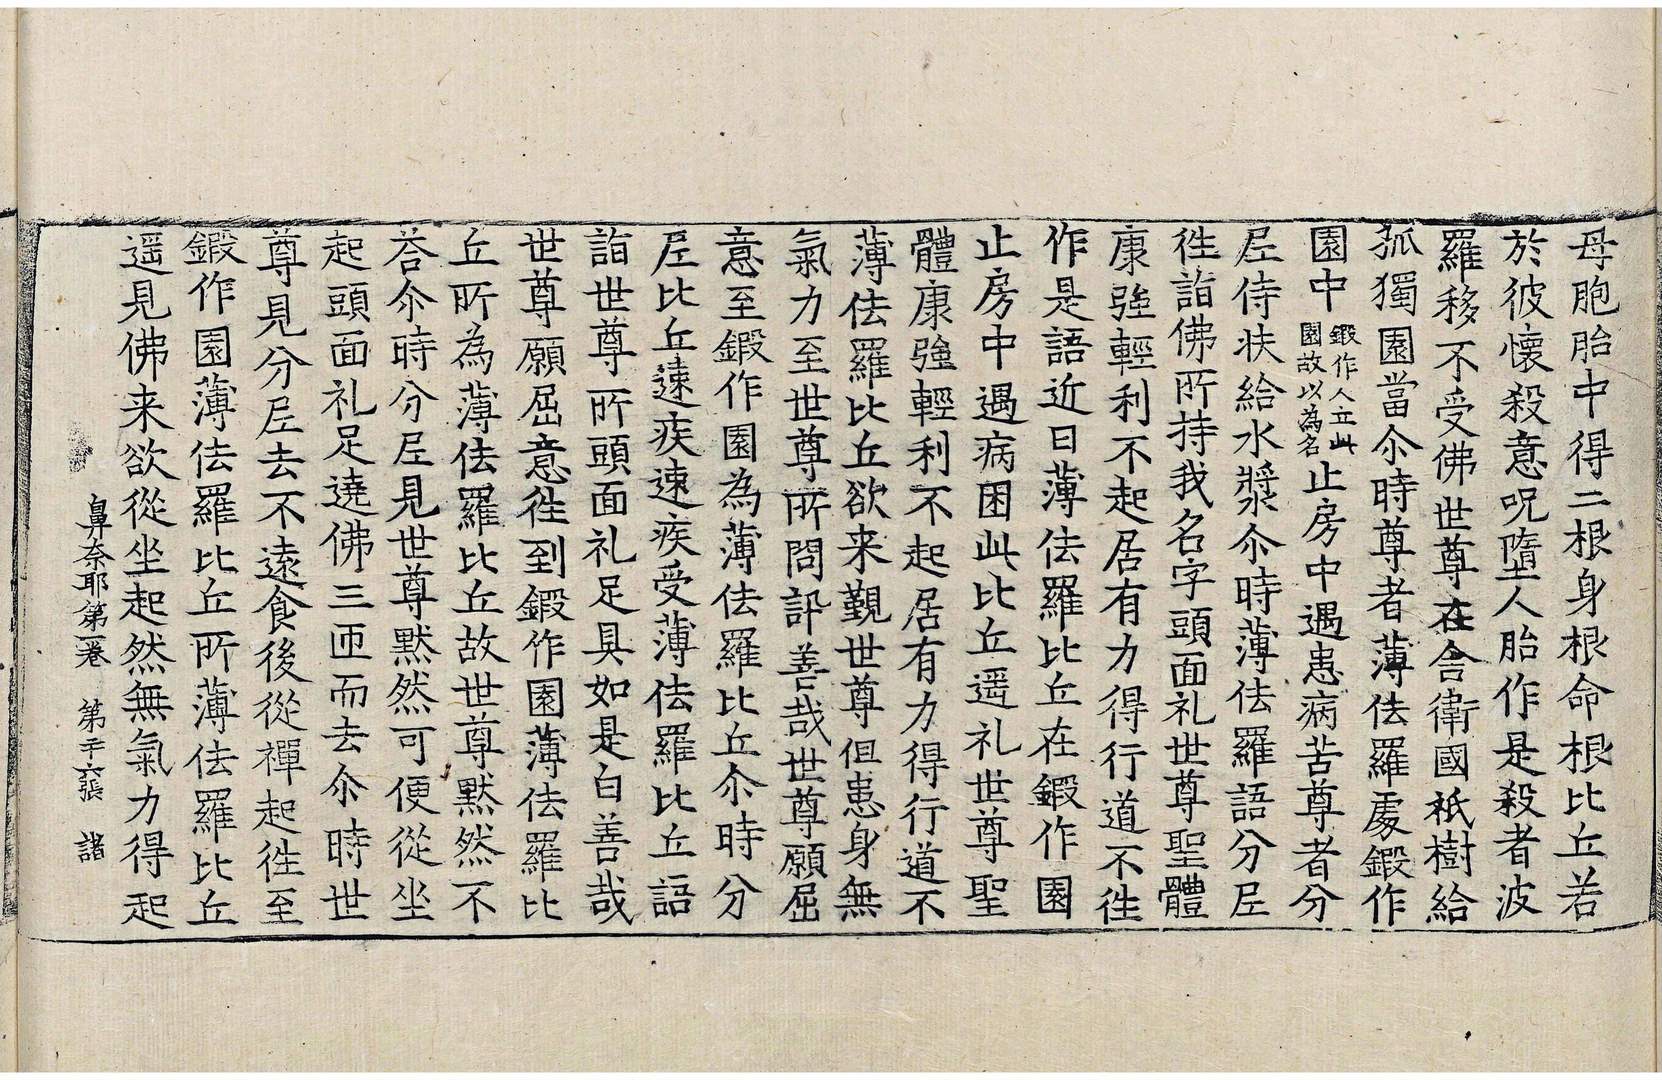 母胞胎中得二根身根命根比丘若
於彼懷殺意呪墮人胎作是殺者波
羅移不受佛世尊在舍衛國祇樹給
孤獨園當尒時尊者薄佉羅處鍛作
園中鍛作人立此園故以為名止房中遇患病苦尊者分
𡰱侍扶給水漿尒時薄佉羅語分𡰱
徃詣佛所持我名字頭面礼世尊聖體
康強輕利不起居有力得行道不徃
作是語近日薄佉羅比丘在鍛作園
止房中遇病困此比丘遥礼世尊聖
體康強輕利不起居有力得行道不
薄佉羅比丘欲来覲世尊但患身無
氣力至世尊所問訊善哉世尊願屈
意至鍛作園為薄佉羅比丘尒時分
𡰱比丘遠疾速疾受薄佉羅比丘語
詣世尊所頭面礼足具如是白善哉
世尊願屈意徃到鍛作園薄佉羅比
丘所為薄佉羅比丘故世尊黙然不
荅尒時分𡰱見世尊黙然可便從坐
起頭面礼足遶佛三匝而去尒時世
尊見分𡰱去不遠食後從禪起徃至
鍛作園薄佉羅比丘所薄佉羅比丘
遥見佛来欲從坐起然無氣力得起
鼻奈耶第一卷 第二十六張 諸